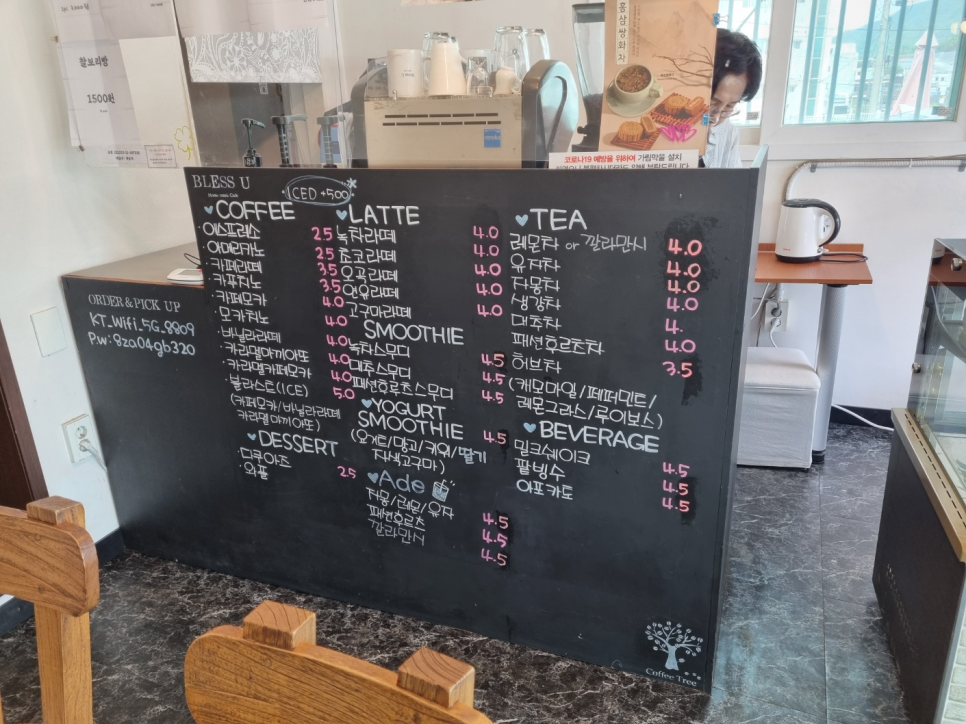 찰보리빵
1500원
홍삼쌍화차
코로나19 예방을 위하여 가림막을 설치
BLESS U
ORDER & PICK UP
KT_Wifi_5G_8809
P.w: 8za04gb320
ICED +500
COFFEE
·에스프레소 2.5
·아메리카노 2.5
·카페라떼 3.5
·카푸치노 3.5
·카페모카 4.0
·모카치노 4.0
·바닐라라떼 4.0
·카라멜마끼아또 4.0
·카라멜카페모카 4.0
·블라스트(ICE) 5.0
(카페모카/바닐라라떼
카라멜마끼아또)
DESSERT
·다쿠아즈 2.5
·와플
LATTE
녹차라떼 4.0
초코라떼 4.0
오곡라떼 4.0
연유라떼 4.0
고구마라떼 4.0
SMOOTHIE
녹차스무디 4.5
대추스무디 4.5
패션후르츠스무디 4.5
YOGURT
SMOOTHIE
(요거트/망고/키위/딸기 4.5
자색고구마)
Ade
자몽/레몬/유자 4.5
패션후르츠 4.5
깔라만시 4.5
TEA
레몬차 or 깔라만시 4.0
유자차 4.0
자몽차 4.0
생강차 4.0
대추차 4.
패션후르츠차 4.0
허브차 3.5
(캐모마일/페퍼민트/
레몬그라스/루이보스)
BEVERAGE
밀크쉐이크 4.5
팥빙수 4.5
아포카토 4.5
Coffee Tree